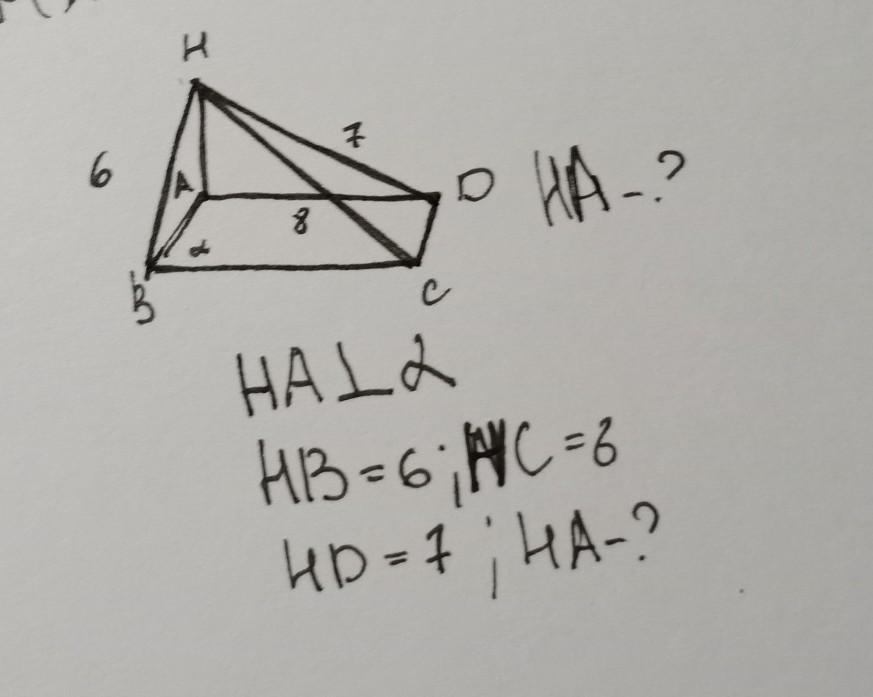 H
6
7
A
D
HA-?
8
α
B
C
HA⊥α
HB=6; HC=8
HD=7; HA-?